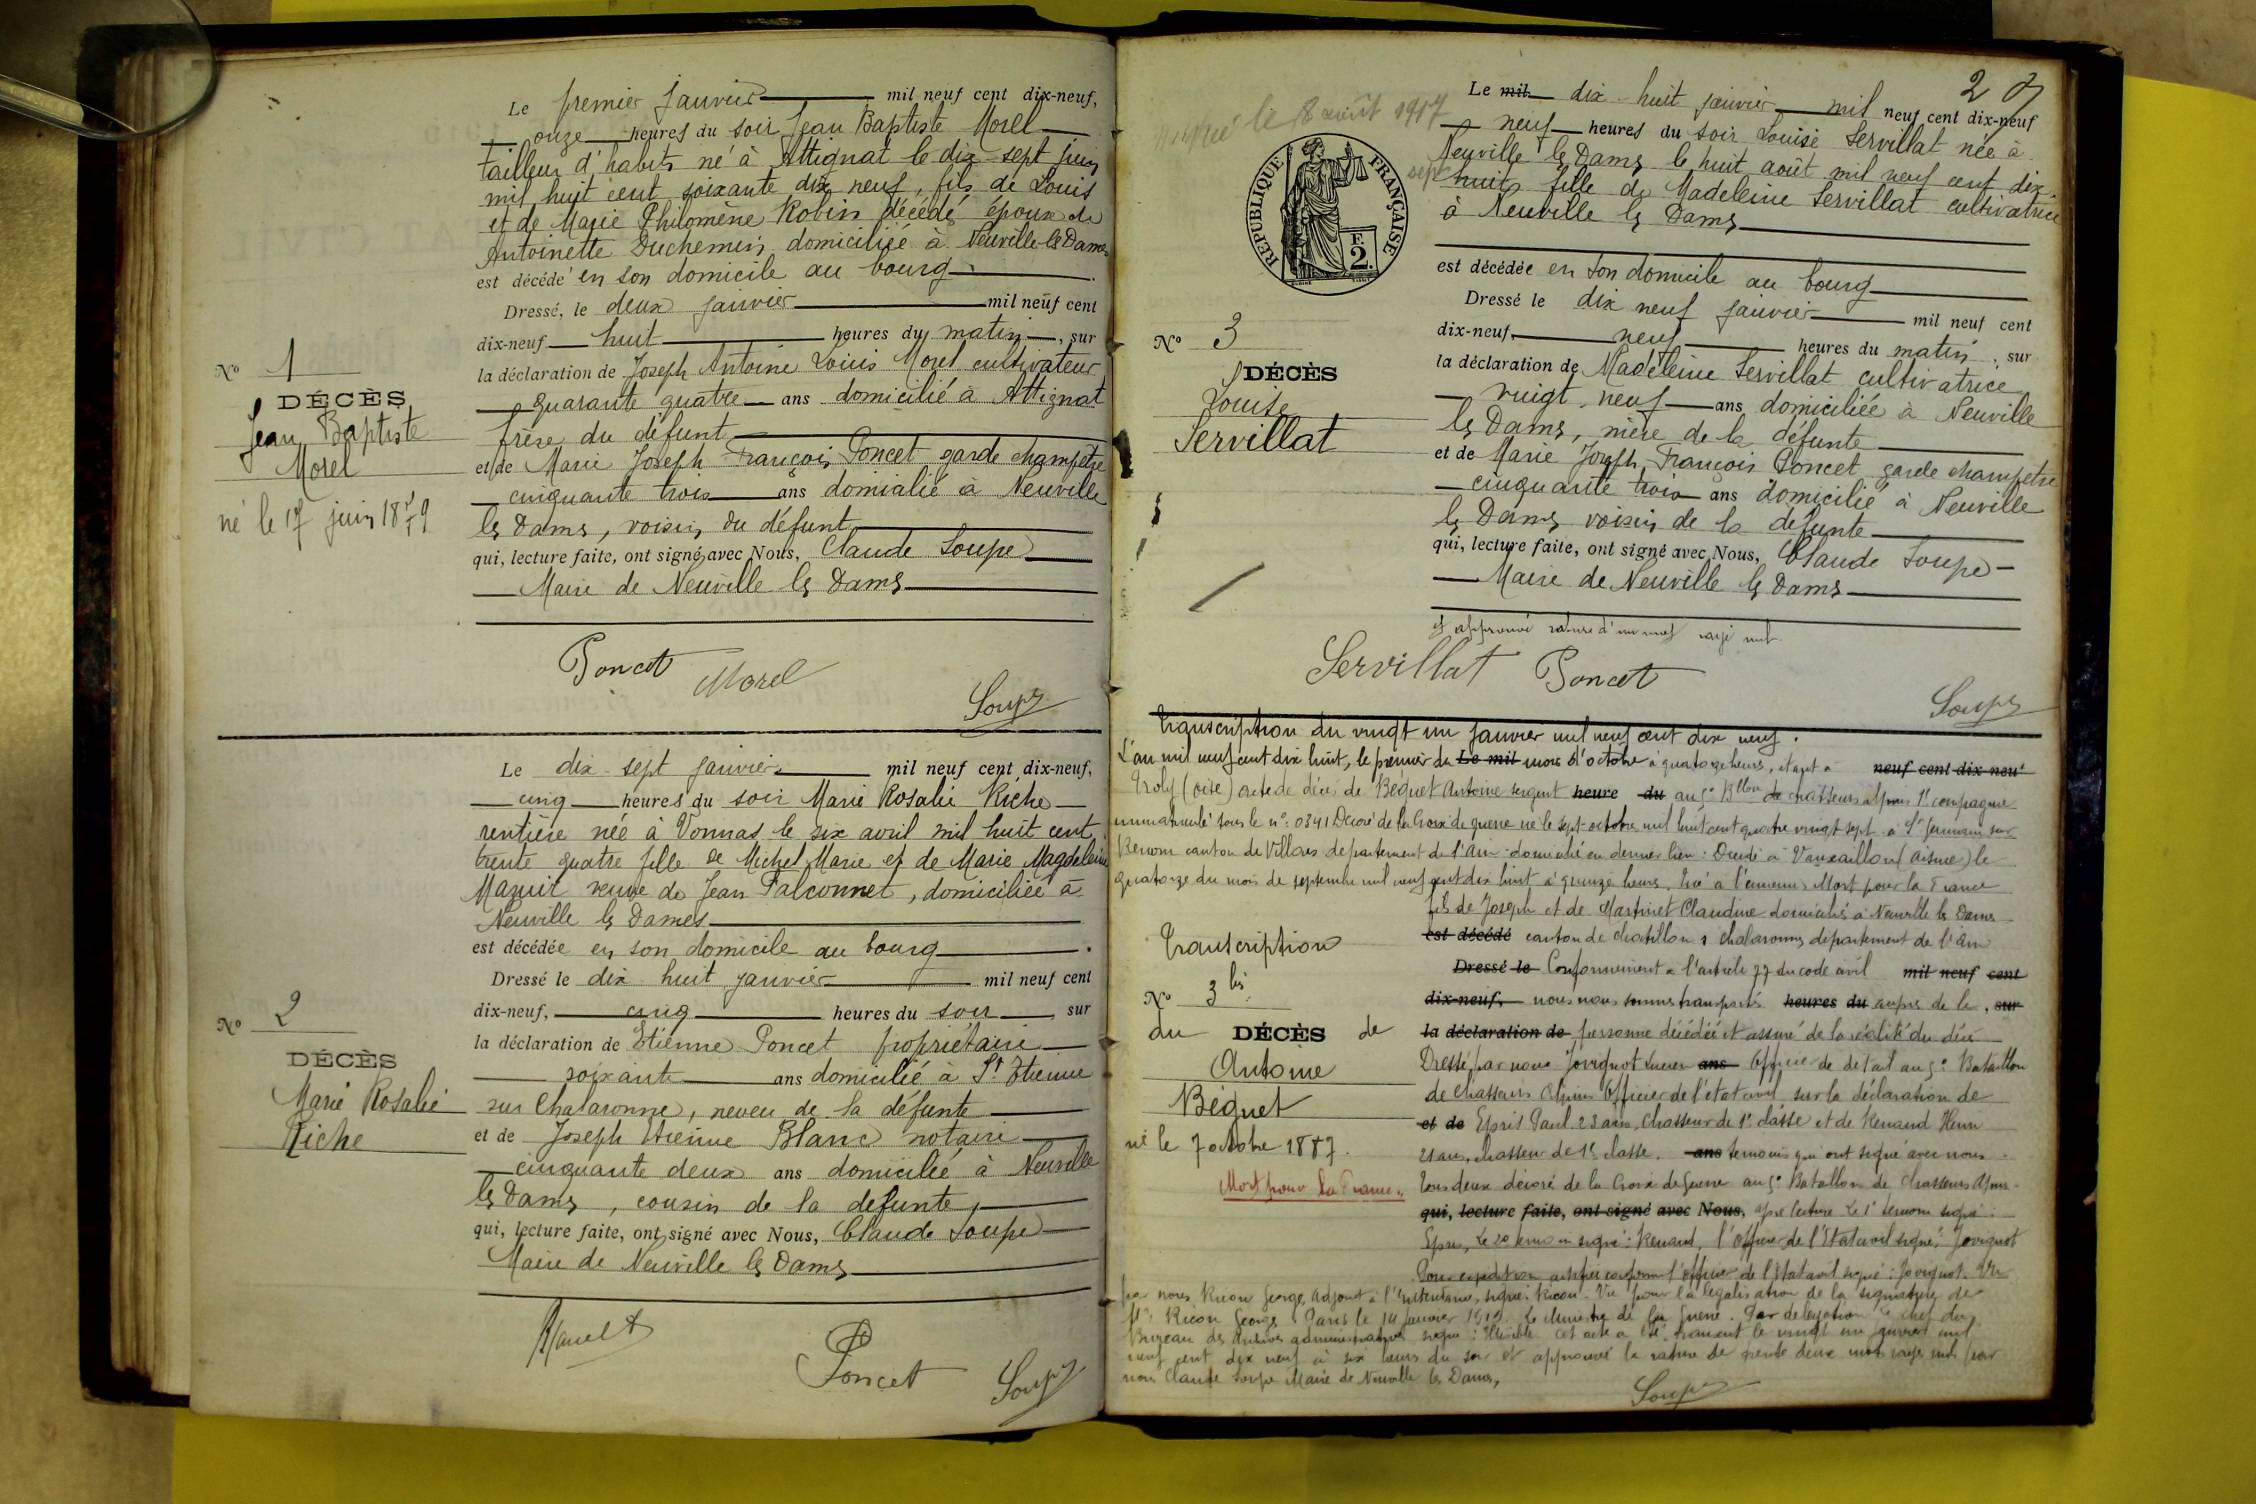 Le premier janvier mil neuf cent dix-neuf,
onze heures du soir Jean Baptiste Morel
tailleur d'habits né à Attignat le dix-sept juin
mil huit cent soixante dix neuf, fils de Louis
et de Marie Philomène Robin décédé époux de
Antoinette Duchemin, domiciliée à Neuville-les-Dames
est décédé en son domicile au bourg
Dressé, le deux janvier mil neuf cent
dix-neuf huit heures du matin, sur
la déclaration de Joseph Antoine Louis Morel cultivateur
quarante quatre ans domicilié à Attignat
frère du défunt
et de Marie Joseph François Poncet garde champêtre
cinquante trois ans domicilié à Neuville
les Dames, voisin du défunt
qui, lecture faite, ont signé avec Nous, Claude Soupe
Maire de Neuville les Dames
Poncet Morel
Soupe
No 1
DÉCÈS
Jean Baptiste
Morel
né le 17 juin 1879
Le dix-sept janvier mil neuf cent dix-neuf,
cinq heures du soir Marie Rosalie Riche
rentière née à Vonnas le six avril mil huit cent
trente quatre fille de Michel Marie et de Marie Magdeleine
Mazuit veuve de Jean Falconnet, domiciliée à
Neuville les Dames
est décédée en son domicile au bourg
Dressé le dix huit janvier mil neuf cent
dix-neuf, cinq heures du soir, sur
la déclaration de Etienne Poncet propriétaire
soixante ans domicilié à St Etienne
sur Chalaronne, neveu de la défunte
et de Joseph Etienne Blanc notaire
cinquante deux ans domicilié à Neuville
les Dames, cousin de la défunte,
qui, lecture faite, ont signé avec Nous, Claude Soupe
Maire de Neuville les Dames
Poncet Soupe
No 2
DÉCÈS
Marie Rosalie
Riche
2
le 8 août 1917
Le mil dix-huit janvier mil neuf cent dix-neuf
neuf heures du soir Louise Servillat née à
Neuville les Dames le huit août mil neuf cent dix
sept huit fille de Madeleine Servillat cultivatrice
à Neuville les Dames
est décédée en son domicile au bourg
Dressé le dix neuf janvier mil neuf cent
dix-neuf, neuf heures du matin, sur
la déclaration de Madeleine Servillat cultivatrice
vingt-neuf ans domiciliée à Neuville
les Dames, mère de la défunte
et de Marie Joseph François Poncet garde champêtre
cinquante trois ans domicilié à Neuville
les Dames voisin de la défunte
qui, lecture faite, ont signé avec Nous, Claude Soupe
Maire de Neuville les Dames
et approuvé rature d'un mot rayé nul
Servillat Poncet
Soupe
REPUBLIQUE FRANÇAISE
F.
2.
No 3
DÉCÈS
Louise
Servillat
Transcription du vingt un janvier mil neuf cent dix neuf.
L'an mil neuf cent dix huit, le premier du Le mil mois d'octobre à quatorze heures, étant à neuf cent dix-neuf
(Oise) acte de décès de Béguet Antoine sergent heure du au 5e Bllon de chasseurs alpins 1e compagnie
immatriculé sous le no: 0341 Décoré de la Croix de guerre né le sept octobre mil huit cent quatre vingt sept à St Germain sur
Renom canton de Villars département de l'Ain domicilié en dernier lieu: Décédé à Vauxaillon (Aisne) le
quatorze du mois de septembre mil neuf cent dix huit à quinze heures. Tué à l'ennemi Mort pour la France
fils de Joseph et de Martinet Claudine domiciliés à Neuville les Dames
est décédé canton de Chatillon s Chalaronne département de l'Ain
Dressé le Conformément à l'article 77 du code civil mil neuf cent
dix-neuf, nous nous sommes transportés heures du auprès de la, sur
la déclaration de personne décédée et assuré de la réalité du décès
Dressé par nous Jovignot Lucien ans Officier de détail au 5e Bataillon
de chasseurs alpins Officier de l'état civil, sur la déclaration de
et de Espris Paul 23 ans, chasseur de 1e classe et de Renaud Henri
21 ans, chasseur de 1e classe. ans témoins qui ont signé avec nous.
Tous deux décoré de la Croix de Guerre au 5e Bataillon de Chasseurs Alpins
qui, lecture faite, ont signé avec Nous, après lecture Le 1e témoin signé:
Espris, Le 2e témoin signé: Renaud, l'officier de l'Etat civil signé: Jovignot
Pour expédition certifiée conforme l'officier de l'Etat civil signé: Jovignot. Vu
par nous Ricou George, Adjoint à l'Intendance, signé: Ricou. Vu pour la légalisation de la signature de
Mr Ricou George Paris le 14 janvier 1919. Le Ministre de la Guerre. Par délégation Le chef du
Bureau des Archives administratives signé: Illisible Cet acte a été transcrit le vingt un janvier mil
neuf cent dix neuf à six heures du soir et approuvé la rature de trente deux mots rayés nuls par
nous Claude Soupe Maire de Neuville les Dames,
Soupe
Transcription
No 3 bis
du DÉCÈS de
Antoine
Béguet
né le 7 octobre 1887.
Mort pour la France.